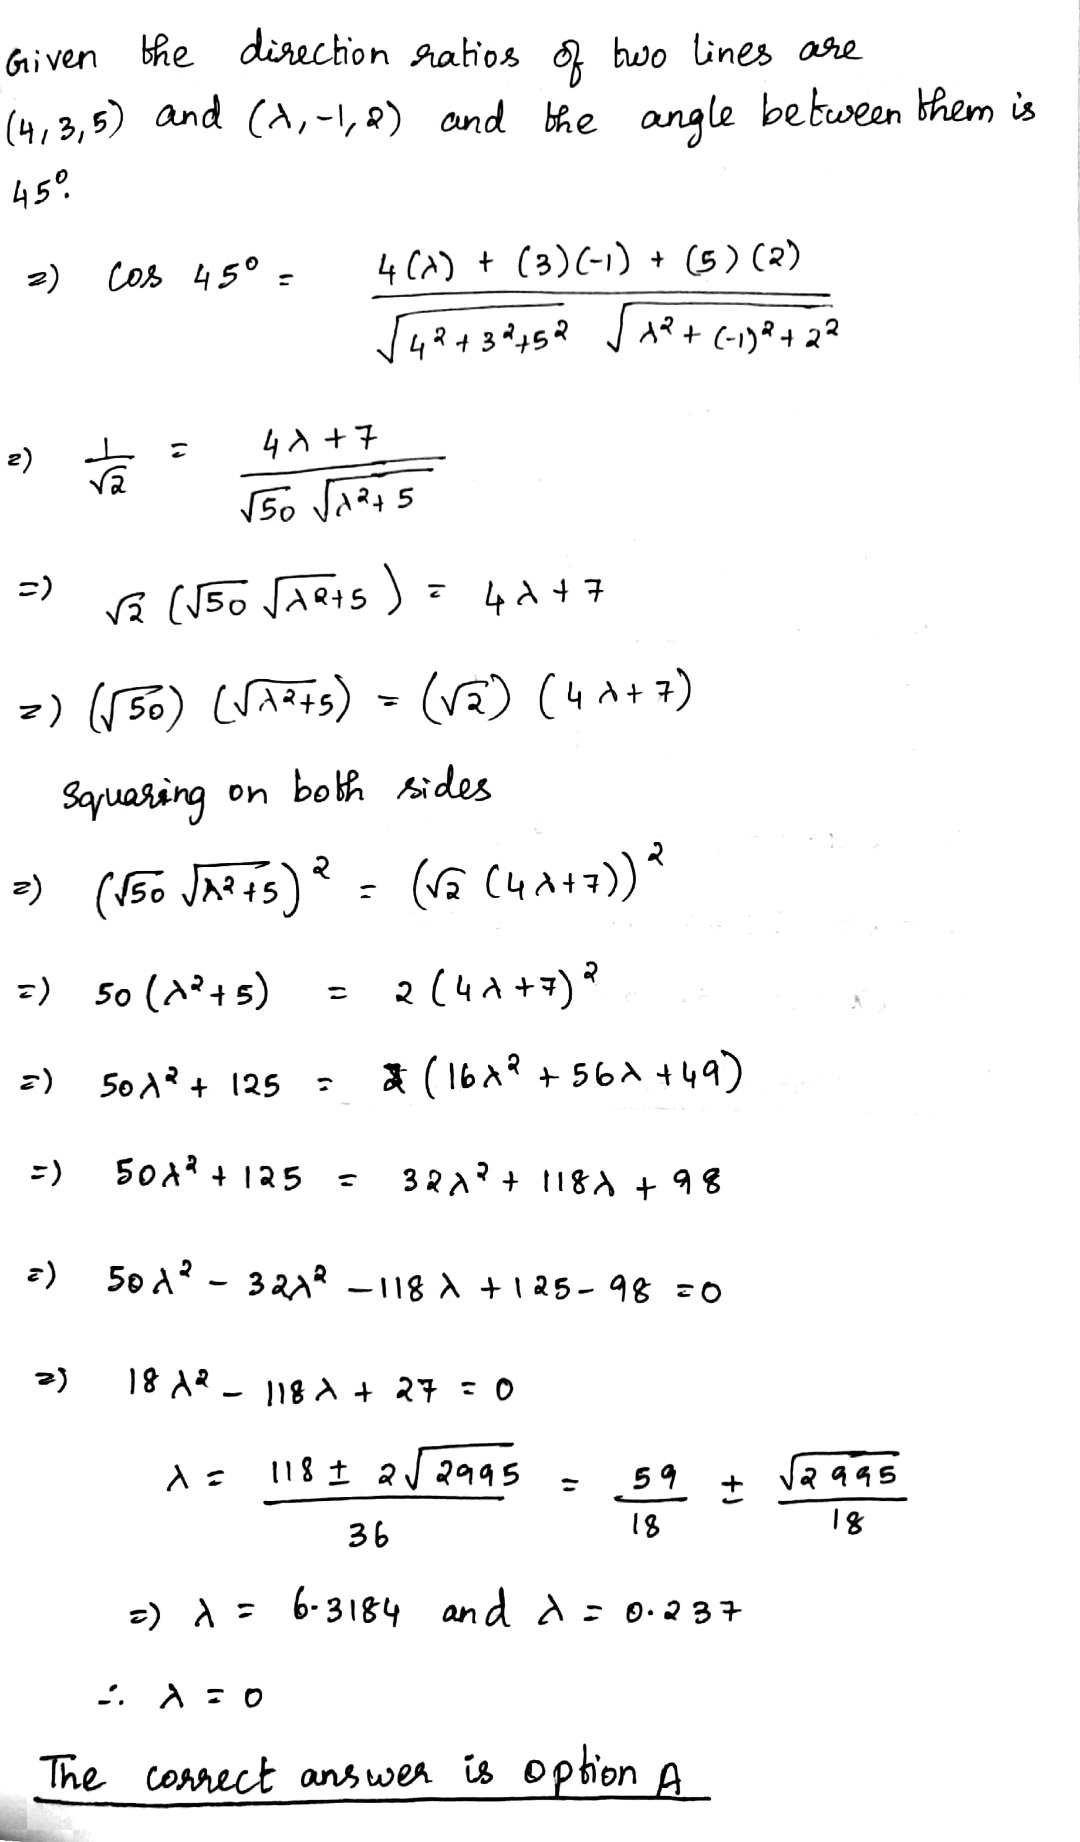 Given the direction ratios of two lines are
(4,3,5) and (λ,-1,2) and the angle between them is
45°.
=) cos 45° = 4(λ) + (3)(-1) + (5)(2) / √4²+3²+5² √λ²+(-1)²+2²
=) 1/√2 = 4λ+7 / √50 √λ²+5
=) √2 (√50 √λ²+5) = 4λ+7
=) (√50) (√λ²+5) = (√2) (4λ+7)
Squaring on both sides
=) (√50 √λ²+5)² = (√2 (4λ+7))²
=) 50(λ²+5) = 2(4λ+7)²
=) 50λ² + 125 = 2(16λ² + 56λ + 49)
=) 50λ² + 125 = 32λ² + 118λ + 98
=) 50λ² - 32λ² - 118λ + 125 - 98 = 0
=) 18λ² - 118λ + 27 = 0
λ = 118 ± 2√2995 / 36 = 59/18 ± √2995/18
=) λ = 6.3184 and λ = 0.237
∴ λ = 0
The correct answer is option A